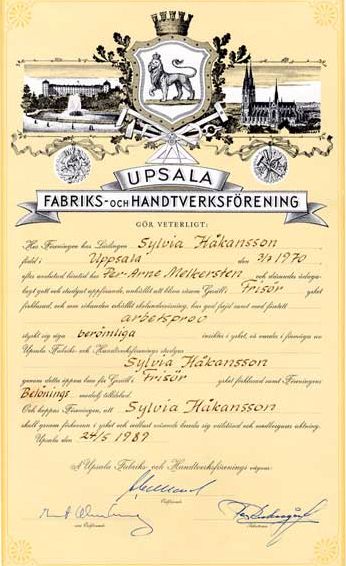 UPSALA
FABRIKS- OCH HANDTVERKSFÖRENING
GÖR VETERLIGT:
Hos Föreningen har Lärlingen Sylvia Håkansson
född i Uppsala den 3/7 1970
efter arbetad lärotid hos Per-Arne Melkersten och därunder ådaga-
lagt gott och stadgat uppförande, anhållit att bliva såsom Gesäll i Frisör yrket
förklarad, och som sökanden erhållit skolundervisning, har god frejd samt med förfett
arbetsprov
styrkt sig äga berömliga insikter i yrket, så varder i förmåga av
Upsala Fabriks- och Handtverksförenings stadgar
Sylvia Håkansson
genom detta öppna brev för Gesäll i Frisör yrket förklarad samt Föreningens
Belönings medalj tilldelad.
Och hoppas Föreningen, att Sylvia Håkansson
skall genom förkovran i yrket och redbart vandel bereda sig välstånd och medborgares aktning.
Upsala den 24/5 1989
Å Upsala Fabriks- och Handtverksförenings vägnar:
Ordförande
vice Ordförande
Sekreterare